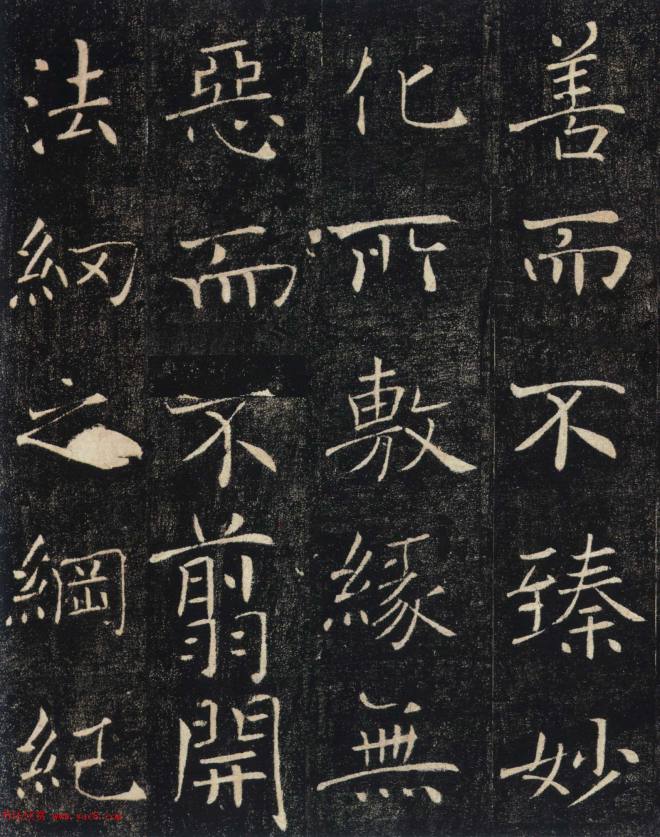 善而不臻妙
化所敷緣無
惡而不翦開
法納之綱紀
www.yac8.com